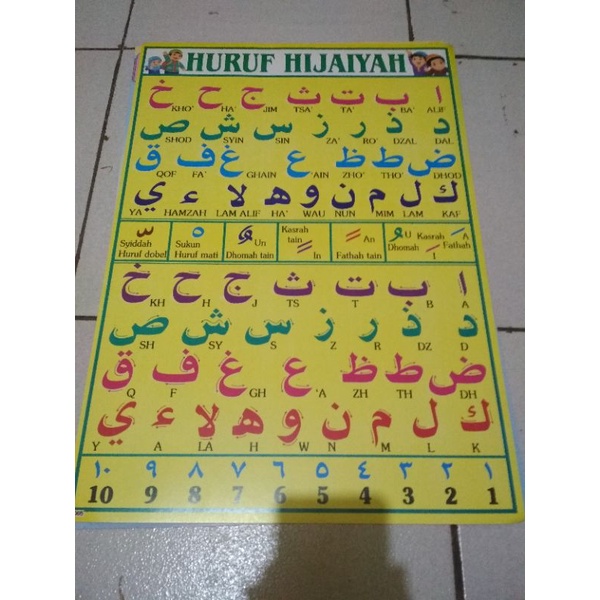 HURUF HIJAIYAH
ا ب ت ث ج ح خ
KHO' HA' JIM TSA' TA' BA' ALIF
د ذ ر ز س ش ص
SHOD SYIN SIN ZA' RO' DZAL DAL
ض ط ظ ع غ ف ق
QOF FA' GHAIN 'AIN ZHO' THO' DHOD
ك ل م ن و ه لا ء ي
YA HAMZAH LAM ALIF HA' WAU NUN MIM LAM KAF
Syiddah
Huruf dobel
Sukun
Huruf mati
Un
Dhomah tain
Kasrah
tain
In
An
Fathah tain
U
Dhomah
Kasrah
I
A
Fathah
ا ب ت ث ج ح خ
KH H J TS T B A
د ذ ر ز س ش ص
SH SY S Z R DZ D
ض ط ظ ع غ ف ق
Q F GH 'A ZH TH DH
ك ل م ن و ه لا ء ي
Y A LA H W N M L K
١٠ ٩ ٨ ٧ ٦ ٥ ٤ ٣ ٢ ١
10 9 8 7 6 5 4 3 2 1